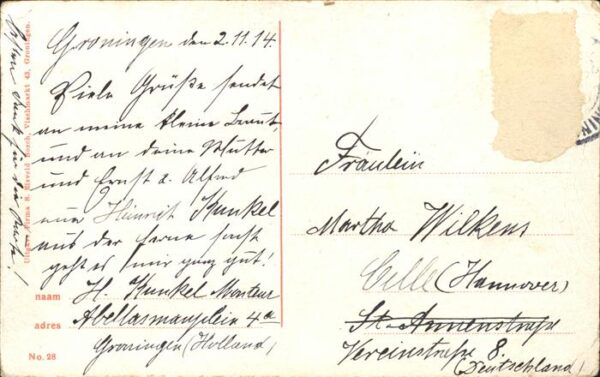 Groningen den 2.11.14.
Viele Grüße sendet
an meine kleine Braut,
und an deine Mutter
und Ernst u. Alfred
euer Heinrich Kunkel
aus der Ferne sonst
geht es mir ganz gut!
H. Kunkel Monteur
naam
adres
Groningen (Holland)
No. 28
Besten Dank für die Karte!
Vischmarkt 43, Groningen.
Fräulein
Martha Wilkens
Celle (Hannover)
St. Annenstraße
Vereinstraße 8.
(Deutschland)